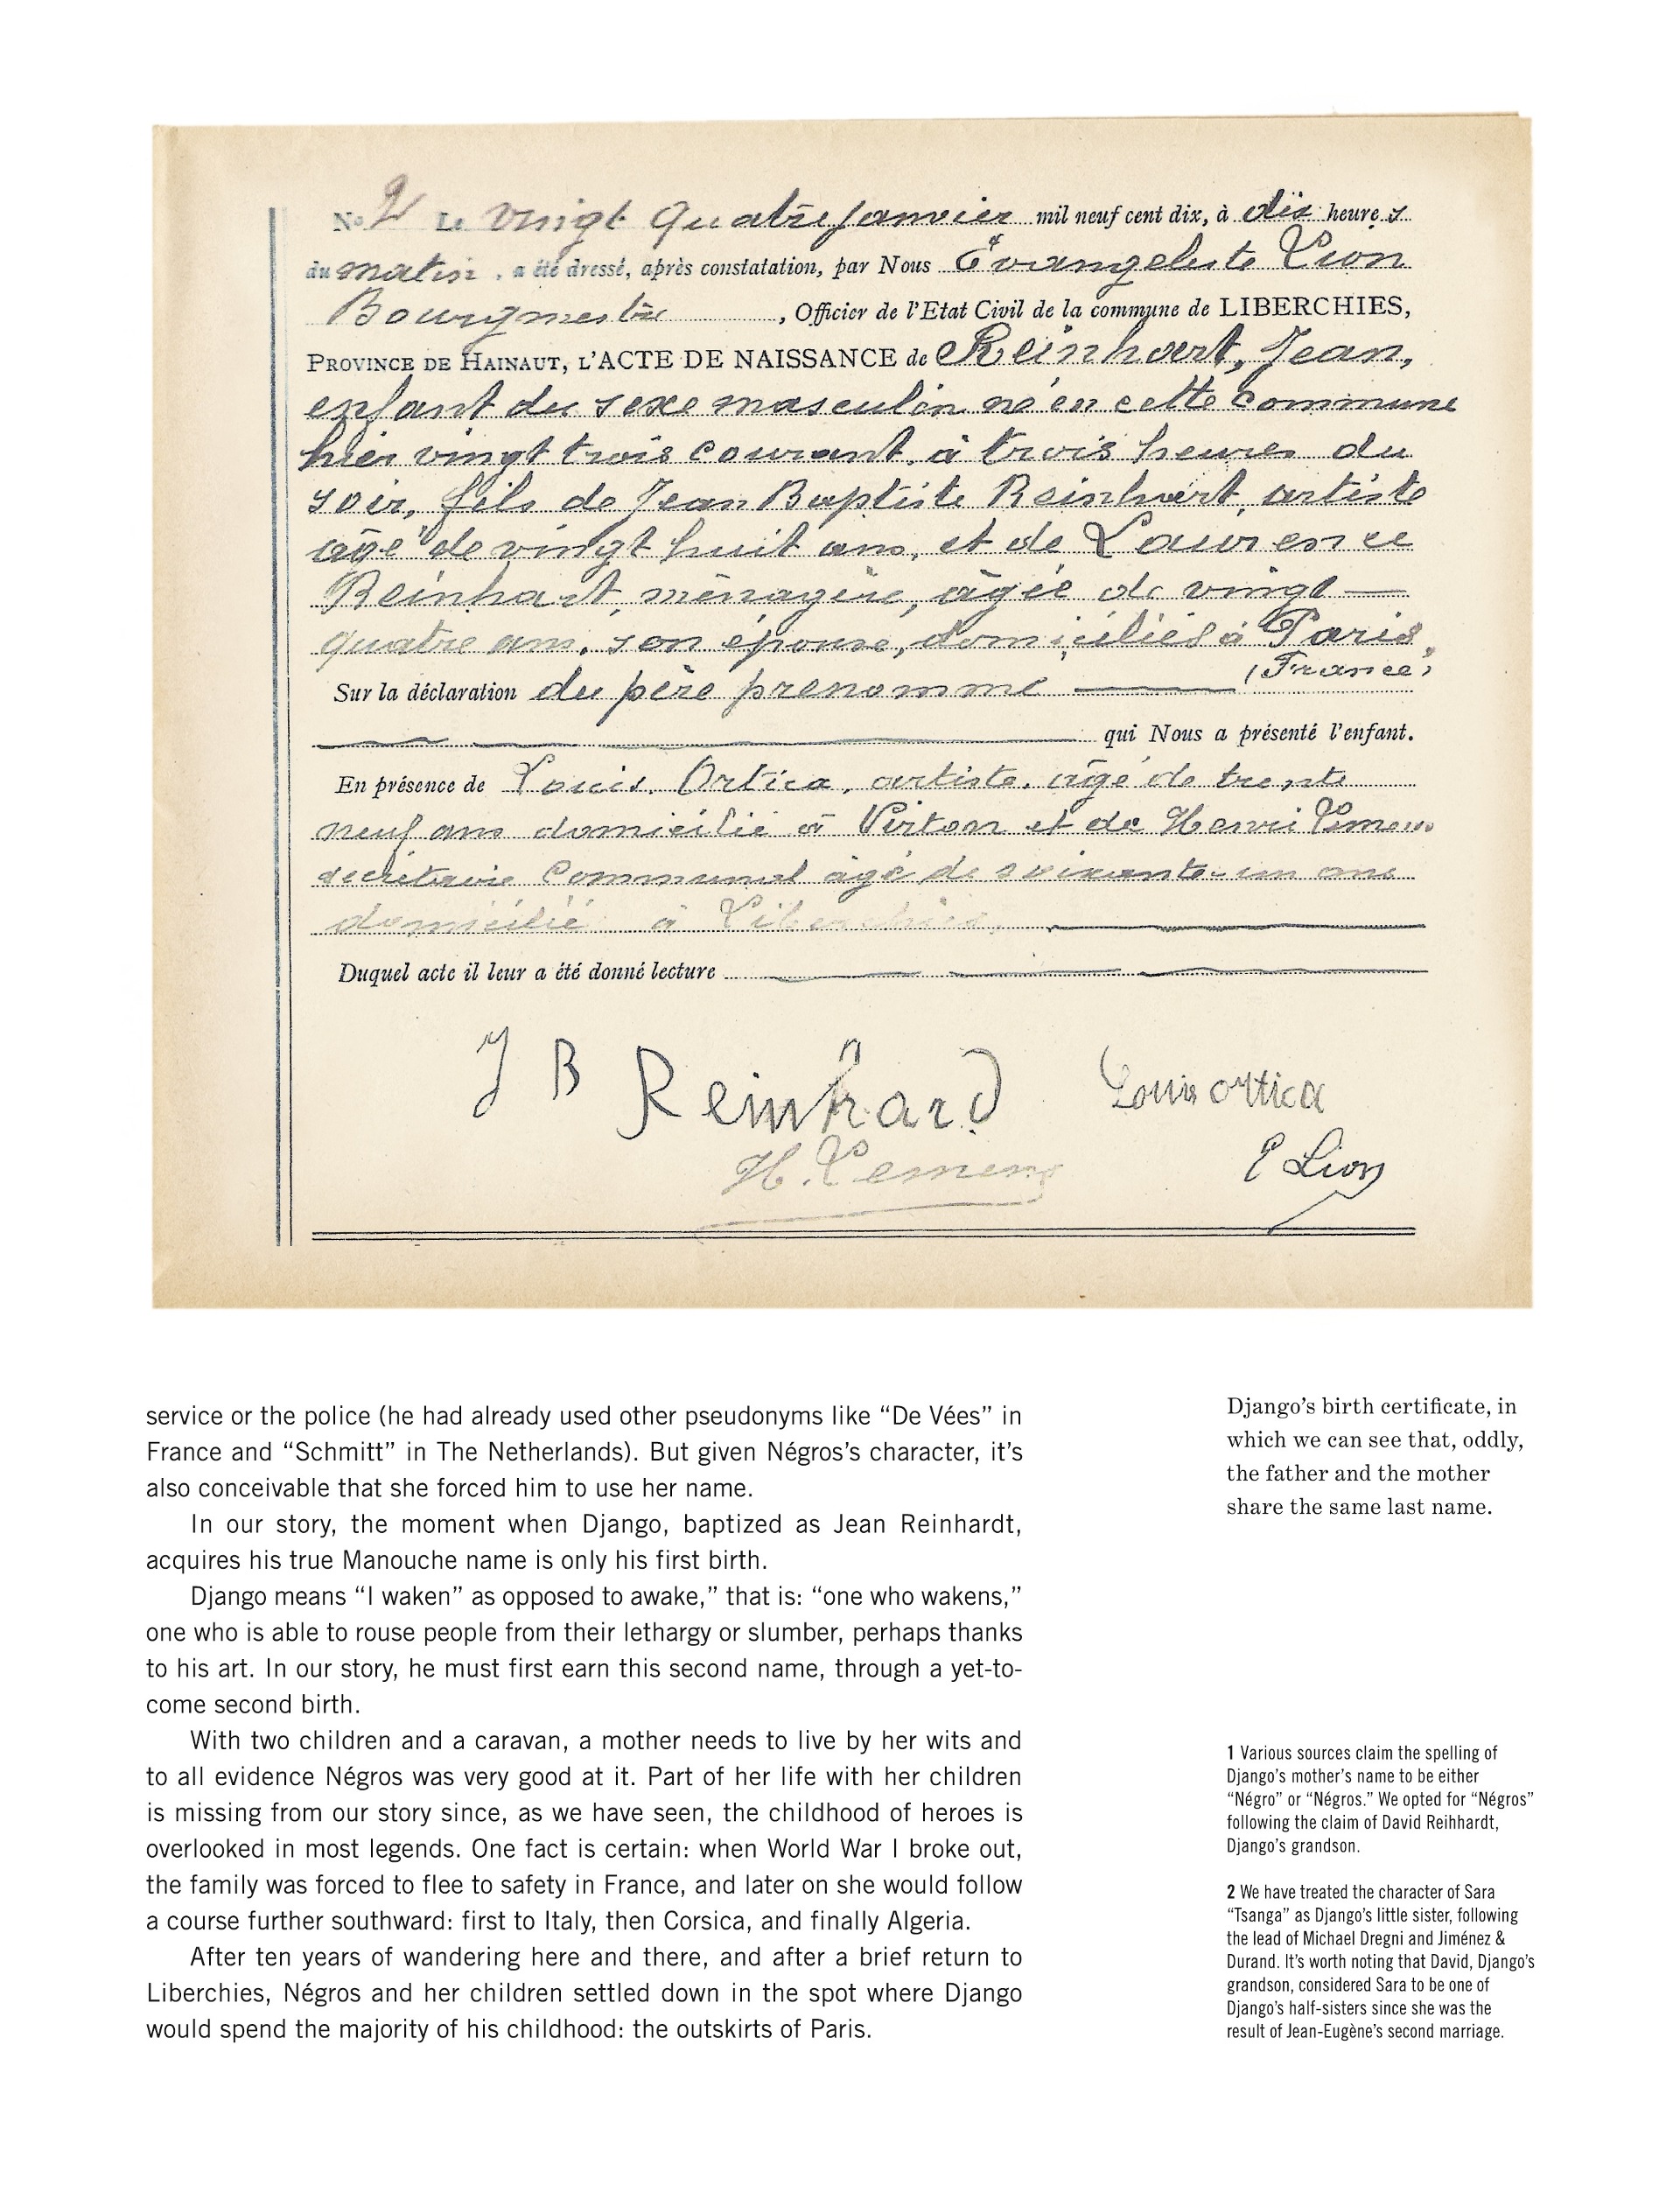 No 2 Le vingt quatre janvier mil neuf cent dix, à dix heures
du matin, a été dressé, après constatation, par Nous Evangeliste Lion
Bourgmestre, Officier de l'Etat Civil de la commune de LIBERCHIES,
PROVINCE DE HAINAUT, L'ACTE DE NAISSANCE de Reinhart, Jean,
enfant du sexe masculin né en cette commune
hier vingt trois courant, à trois heures du
soir, fils de Jean Baptiste Reinhart, artiste
âgé de vingt huit ans, et de Laurence
Reinhart, ménagère, âgée de vingt —
quatre ans, son épouse, domiciliés à Paris,
(France)
Sur la déclaration du père prenommé
qui Nous a présenté l'enfant.
En présence de Louis Ortica, artiste, âgé de trente
neuf ans domicilié à Virton et de Henri
secrétaire Communal âgé de soixante-un ans
domicilié à Liberchies,
Duquel acte il leur a été donné lecture
J B Reinhard
Louis ortica
H.
E Lion
service or the police (he had already used other pseudonyms like “De Vées” in
France and “Schmitt” in The Netherlands). But given Négros’s character, it’s
also conceivable that she forced him to use her name.
In our story, the moment when Django, baptized as Jean Reinhardt,
acquires his true Manouche name is only his first birth.
Django means “I waken” as opposed to awake,” that is: “one who wakens,”
one who is able to rouse people from their lethargy or slumber, perhaps thanks
to his art. In our story, he must first earn this second name, through a yet-to-
come second birth.
With two children and a caravan, a mother needs to live by her wits and
to all evidence Négros was very good at it. Part of her life with her children
is missing from our story since, as we have seen, the childhood of heroes is
overlooked in most legends. One fact is certain: when World War I broke out,
the family was forced to flee to safety in France, and later on she would follow
a course further southward: first to Italy, then Corsica, and finally Algeria.
After ten years of wandering here and there, and after a brief return to
Liberchies, Négros and her children settled down in the spot where Django
would spend the majority of his childhood: the outskirts of Paris.
Django’s birth certificate, in
which we can see that, oddly,
the father and the mother
share the same last name.
1 Various sources claim the spelling of
Django’s mother’s name to be either
“Négro” or “Négros.” We opted for “Négros”
following the claim of David Reihhardt,
Django’s grandson.
2 We have treated the character of Sara
“Tsanga” as Django’s little sister, following
the lead of Michael Dregni and Jiménez &
Durand. It’s worth noting that David, Django’s
grandson, considered Sara to be one of
Django’s half-sisters since she was the
result of Jean-Eugène’s second marriage.